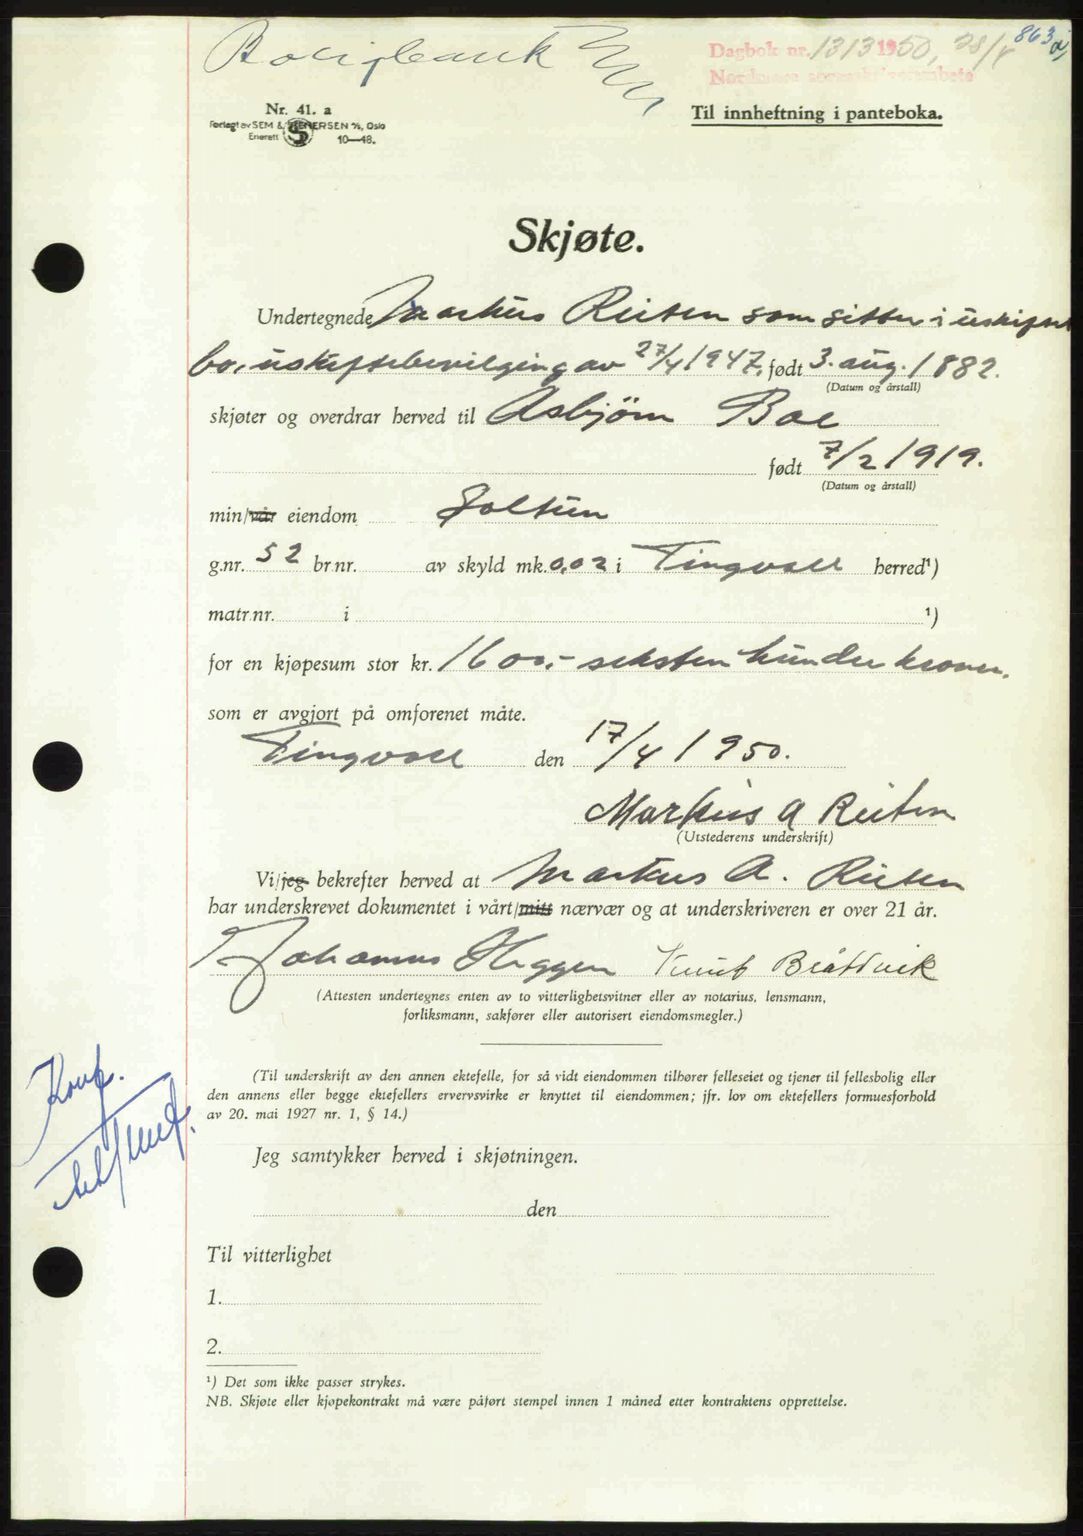 Boligbank
Dagbok nr. 1313 1950, 28/4
863
Nordmøre sorenskriverembete
Nr. 41. a
Forlagt av SEM & STENERSEN A/S, Oslo
Enerett 10—48.
Til innheftning i panteboka.
Skjøte.
Undertegnede Markus Reiten som sitter i uskiftet
bo, uskiftebevilging av 27/4 1947, født 3. aug. 1882.
(Datum og årstall)
skjøter og overdrar herved til Asbjørn Boe
født 7/2 1919.
(Datum og årstall)
min/vår eiendom Soltun
g.nr. 52 br.nr. av skyld mk. 0,02 i Tingvoll herred¹)
matr.nr. i ¹)
for en kjøpesum stor kr. 1600,- seksten hundre kroner.
som er avgjort på omforenet måte.
Tingvoll den 17/4 1950.
Markus A Reiten
(Utstederens underskrift)
Vi/jeg bekrefter herved at Markus A. Reiten
har underskrevet dokumentet i vårt/mitt nærvær og at underskriveren er over 21 år.
Johannes Heggem Knut Bråttvik
(Attesten undertegnes enten av to vitterlighetsvitner eller av notarius, lensmann,
forliksmann, sakfører eller autorisert eiendomsmegler.)
(Til underskrift av den annen ektefelle, for så vidt eiendommen tilhører felleseiet og tjener til fellesbolig eller
den annens eller begge ektefellers ervervsvirke er knyttet til eiendommen; jfr. lov om ektefellers formuesforhold
av 20. mai 1927 nr. 1, § 14.)
Konf.
Jeg samtykker herved i skjøtningen.
den
Til vitterlighet
1.
2.
¹) Det som ikke passer strykes.
NB. Skjøte eller kjøpekontrakt må være påført stempel innen 1 måned etter kontraktens opprettelse.